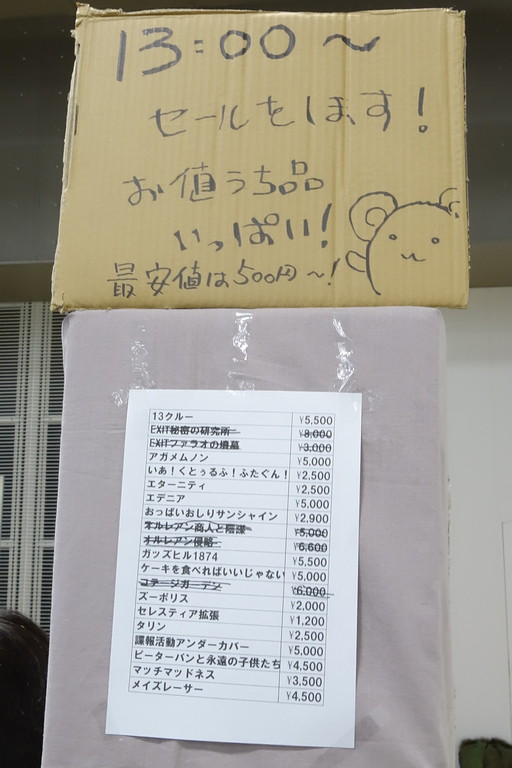 13:00〜
セールをします!
お値うち品
いっぱい!
最安値は500円〜!
13クルー ¥5,500
EXIT秘密の研究所 ¥8,000
EXITファラオの墳墓 ¥3,000
アガメムノン ¥5,000
いあ!くとぅるふ!ふたぐん! ¥2,500
エターニティ ¥2,500
エデニア ¥5,000
おっぱいおしりサンシャイン ¥2,900
オルレアン商人と陰謀 ¥5,000
オルレアン侵略 ¥6,600
ガッズヒル1874 ¥5,500
ケーキを食べればいいじゃない ¥5,000
コテージガーデン ¥6,000
ズーポリス ¥2,000
セレスティア拡張 ¥1,200
タリン ¥2,500
諜報活動アンダーカバー ¥5,000
ピーターパンと永遠の子供たち ¥4,500
マッチマッドネス ¥3,500
メイズレーサー ¥4,500